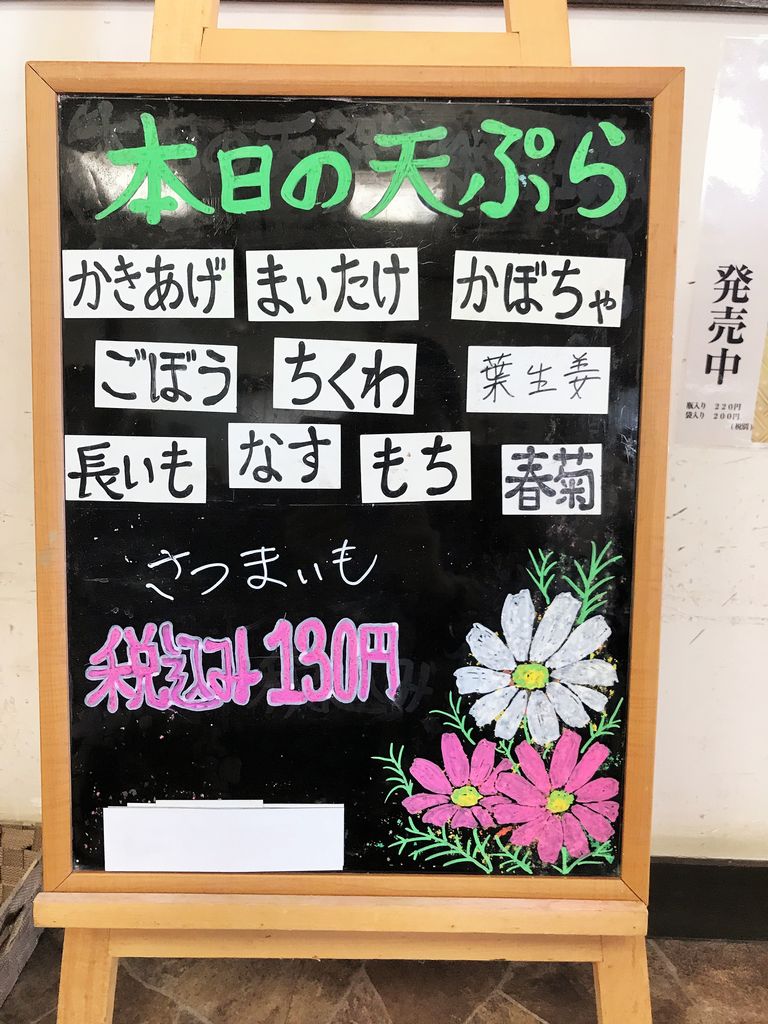 本日の天ぷら
かきあげ まいたけ かぼちゃ
ごぼう ちくわ 葉生姜
長いも なす もち 春菊
さつまいも
税込み130円
発売中
瓶入り 220円
袋入り 200円
(税別)